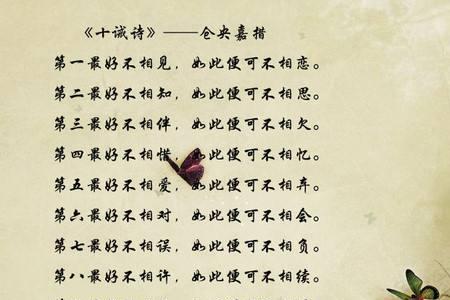 《十诫诗》——仓央嘉措
第一最好不相见，如此便可不相恋。
第二最好不相知，如此便可不相思。
第三最好不相伴，如此便可不相欠。
第四最好不相惜，如此便可不相忆。
第五最好不相爱，如此便可不相弃。
第六最好不相对，如此便可不相会。
第七最好不相误，如此便可不相负。
第八最好不相许，如此便可不相续。